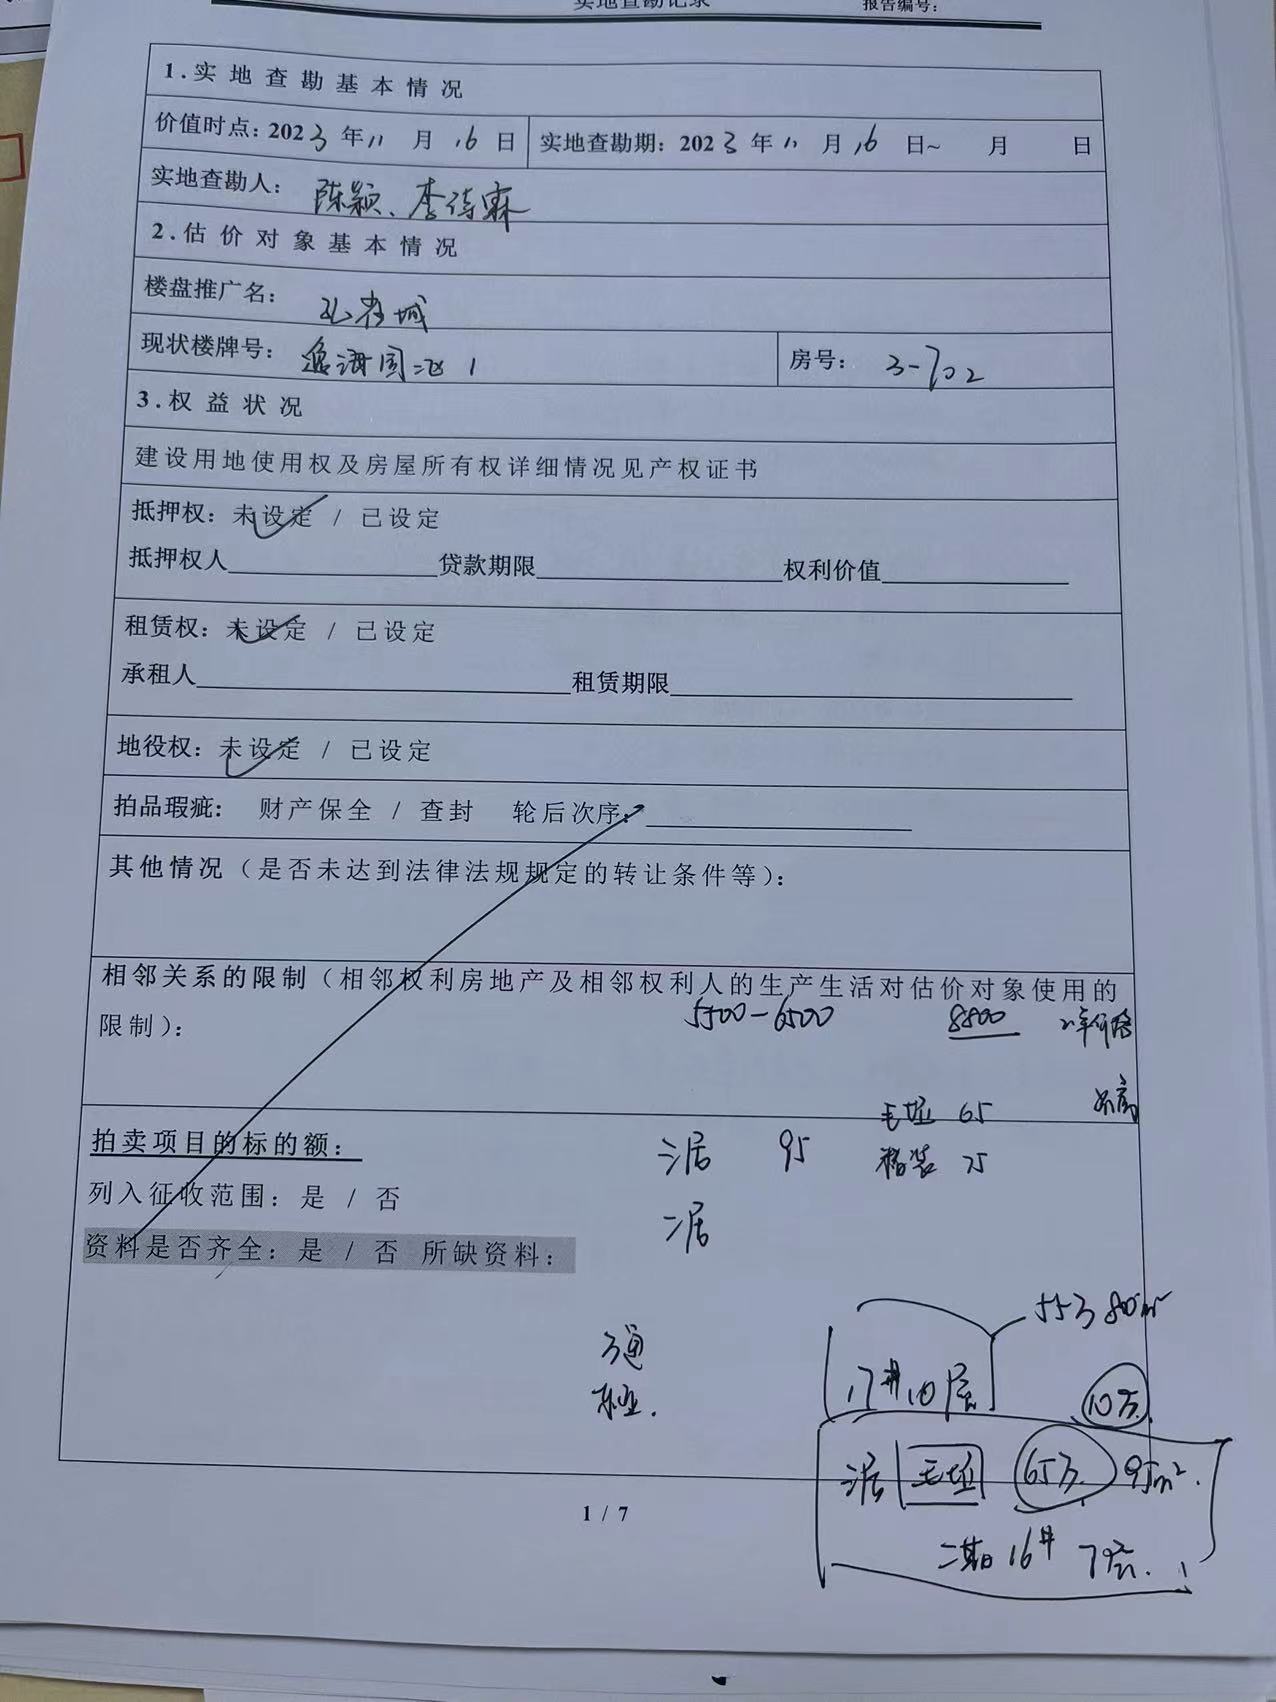 实地查勘记录 报告编号:
1.实地查勘基本情况
价值时点:2023年11月16日 实地查勘期:2023年11月16日~ 月 日
实地查勘人: 陈颖、李诗霖
2.估价对象基本情况
楼盘推广名:
现状楼牌号: 房号: 3-702
3.权益状况
建设用地使用权及房屋所有权详细情况见产权证书
抵押权:未设定 / 已设定
抵押权人 贷款期限 权利价值
租赁权:未设定 / 已设定
承租人 租赁期限
地役权:未设定 / 已设定
拍品瑕疵: 财产保全 / 查封 轮后次序:
其他情况(是否未达到法律法规规定的转让条件等):
相邻关系的限制(相邻权利房地产及相邻权利人的生产生活对估价对象使用的
限制):
5500-6500 8800 21年价格
毛坯 65
拍卖项目的标的额:
三居 95 精装 75
列入征收范围:是 / 否
二居
资料是否齐全:是 / 否 所缺资料:
55万 80m²
17# 10层 10万
三居 毛坯 65万 95m².
1 / 7
二期 16# 7层.